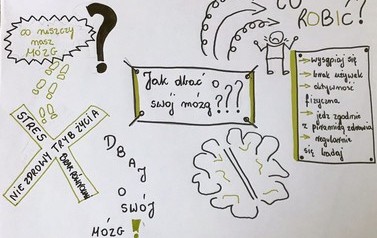 co niszczy
nasz
MÓZG
?
CO
ROBIĆ!
Jak dbać o
swój mózg???
→ wysypiaj się
→ brak używek
→ aktywność
fizyczna
→ jedz zgodnie
z piramidą zdrowia
→ regularnie
się badaj
STRES
NIEZDROWY TRYB ŻYCIA
DBAJ
O
SWÓJ
MÓZG!